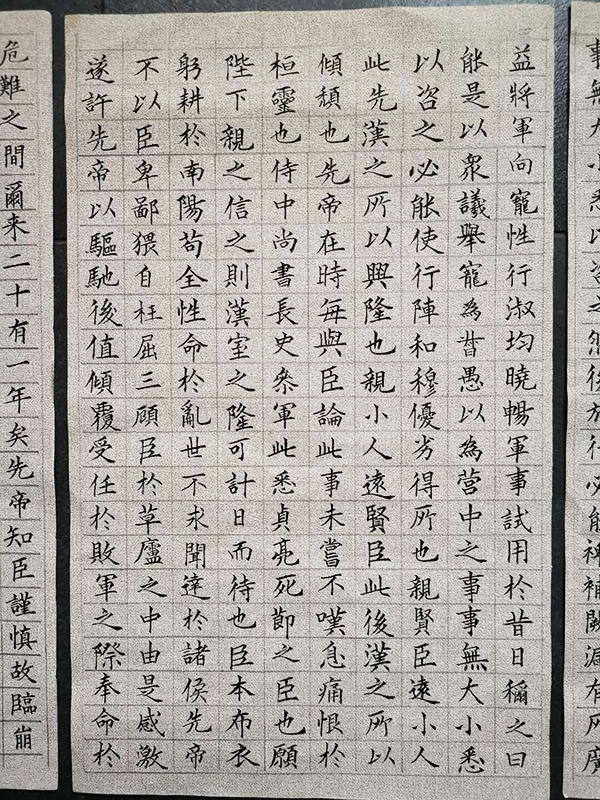 事無大小悉以咨之然後施行必能裨補闕漏有所廣
益將軍向寵性行淑均曉暢軍事試用於昔日稱之曰
能是以衆議舉寵為督愚以為營中之事事無大小悉
以咨之必能使行陣和穆優劣得所也親賢臣遠小人
此先漢之所以興隆也親小人遠賢臣此後漢之所以
傾頹也先帝在時每與臣論此事未嘗不嘆息痛恨於
桓靈也侍中尚書長史叅軍此悉貞亮死節之臣也願
陛下親之信之則漢室之隆可計日而待也臣本布衣
躬耕於南陽苟全性命於亂世不求聞達於諸侯先帝
不以臣卑鄙猥自枉屈三顧臣於草廬之中由是感激
遂許先帝以驅馳後值傾覆受任於敗軍之際奉命於
危難之間爾来二十有一年矣先帝知臣謹慎故臨崩